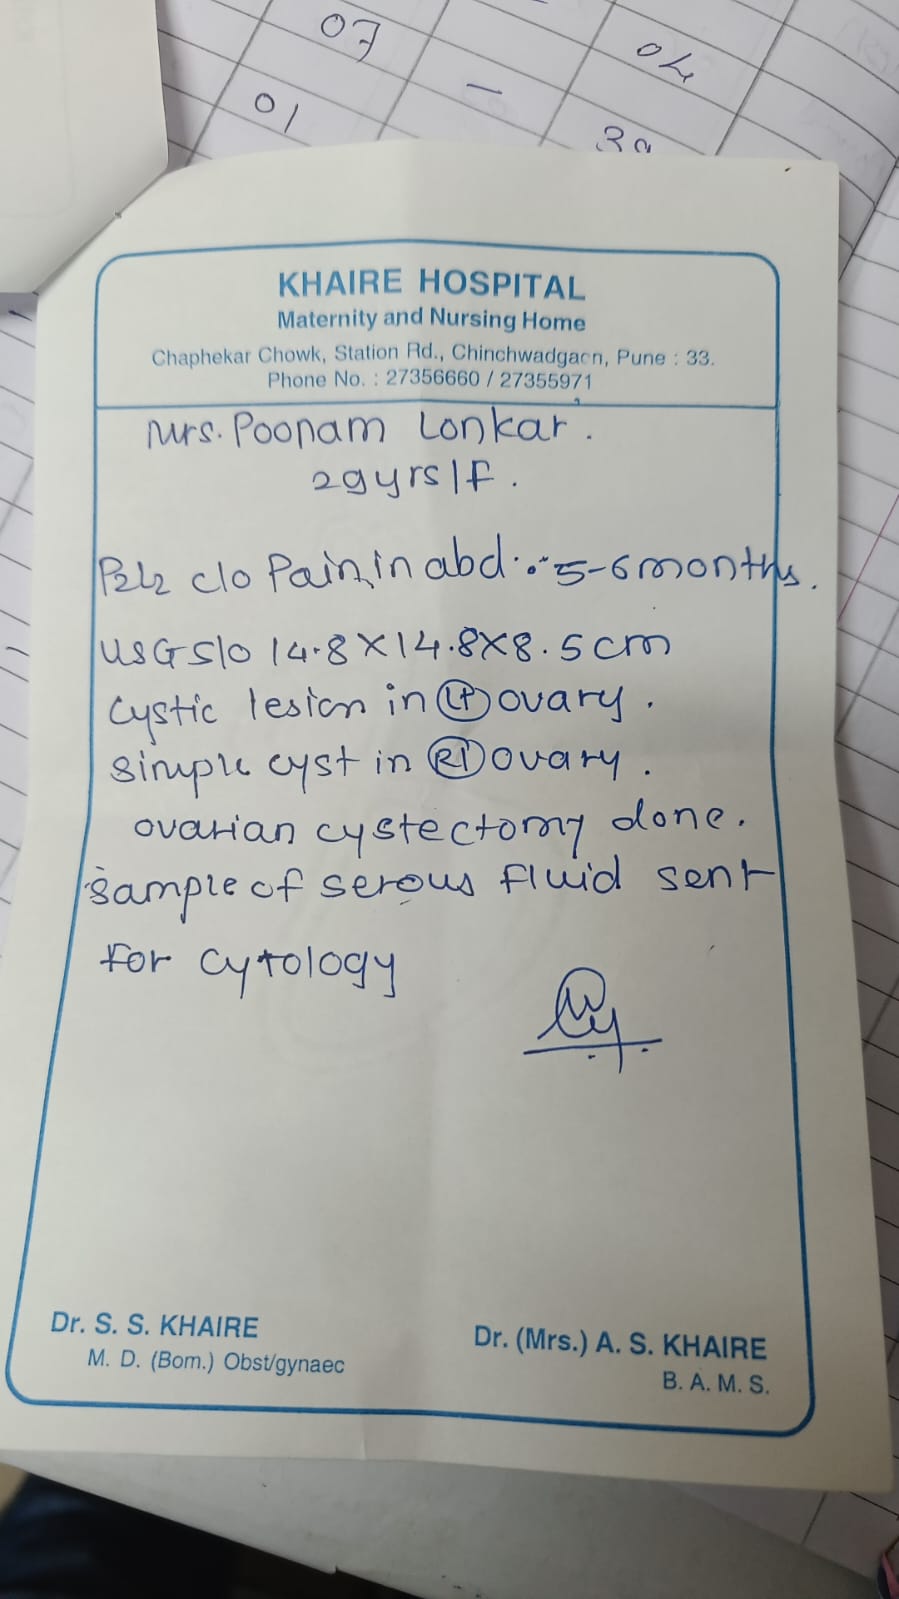 07
04
01
-
39
KHAIRE HOSPITAL
Maternity and Nursing Home
Chaphekar Chowk, Station Rd., Chinchwadgaon, Pune : 33.
Phone No. : 27356660 / 27355971
Mrs. Poonam Lonkar.
29yrs/F.
P2L2 c/o Pain in abd. 5-6 months.
USG S/o 14.8X14.8X8.5cm
Cystic lesion in Lt ovary.
simple cyst in Rt ovary.
ovarian cystectomy done.
sample of serous fluid sent
for cytology
Dr. S. S. KHAIRE
M. D. (Bom.) Obst/gynaec
Dr. (Mrs.) A. S. KHAIRE
B. A. M. S.